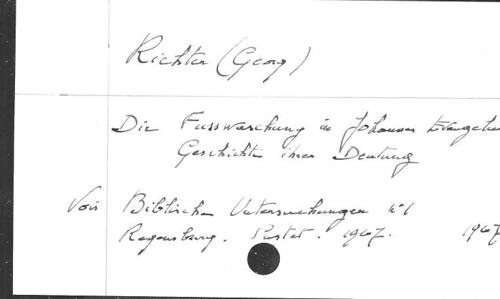 Richter (Georg)
Die Fusswaschung in Johannes Evangelium
Geschichte ihrer Deutung
Voir Biblische Untersuchungen n°1
Regensburg. Pustet. 1967. 1967